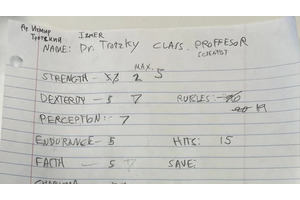 Др Измир
Троцкий
IZMER
NAME: Dr. Trotzky CLASS. PROFFESOR
SCIENTIST
MAX.
STRENGTH - 2 5
DEXTERITY - 5 7 RUBLES: 19
PERCEPTION: 7
ENDURANCE - 5 HITS: 15
FAITH - 5 7 SAVE: